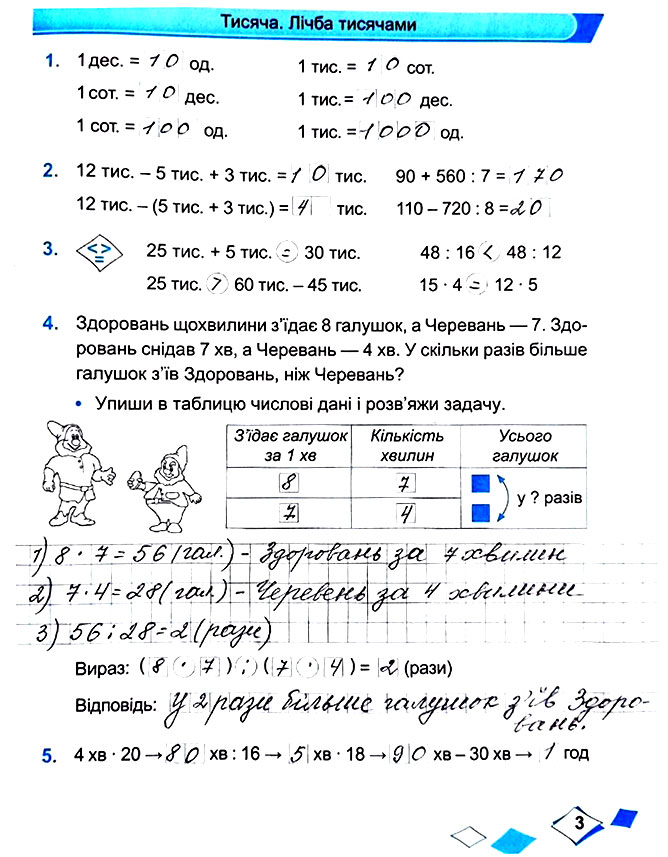 Тисяча. Лічба тисячами
1. 1 дес. = 10 од. 1 тис. = 10 сот.
1 сот. = 10 дес. 1 тис. = 100 дес.
1 сот. = 100 од. 1 тис. = 1000 од.
2. 12 тис. – 5 тис. + 3 тис. = 10 тис. 90 + 560 : 7 = 170
12 тис. – (5 тис. + 3 тис.) = 4 тис. 110 – 720 : 8 = 20
3. < > = 25 тис. + 5 тис. = 30 тис. 48 : 16 < 48 : 12
25 тис. > 60 тис. – 45 тис. 15 · 4 = 12 · 5
4. Здоровань щохвилини з'їдає 8 галушок, а Черевань — 7. Здо-
ровань снідав 7 хв, а Черевань — 4 хв. У скільки разів більше
галушок з'їв Здоровань, ніж Черевань?
• Упиши в таблицю числові дані і розв'яжи задачу.
З'їдає галушок за 1 хв Кількість хвилин Усього галушок
8 7
у ? разів
7 4
1) 8 · 7 = 56 (гал.) - Здоровань за 7 хвилин
2) 7 · 4 = 28 (гал.) - Черевень за 4 хвилини
3) 56 : 28 = 2 (рази)
Вираз: (8 · 7) : (7 · 4) = 2 (рази)
Відповідь: У 2 рази більше галушок з'їв Здоро-
вань.
5. 4 хв · 20 → 80 хв : 16 → 5 хв · 18 → 90 хв – 30 хв → 1 год
3